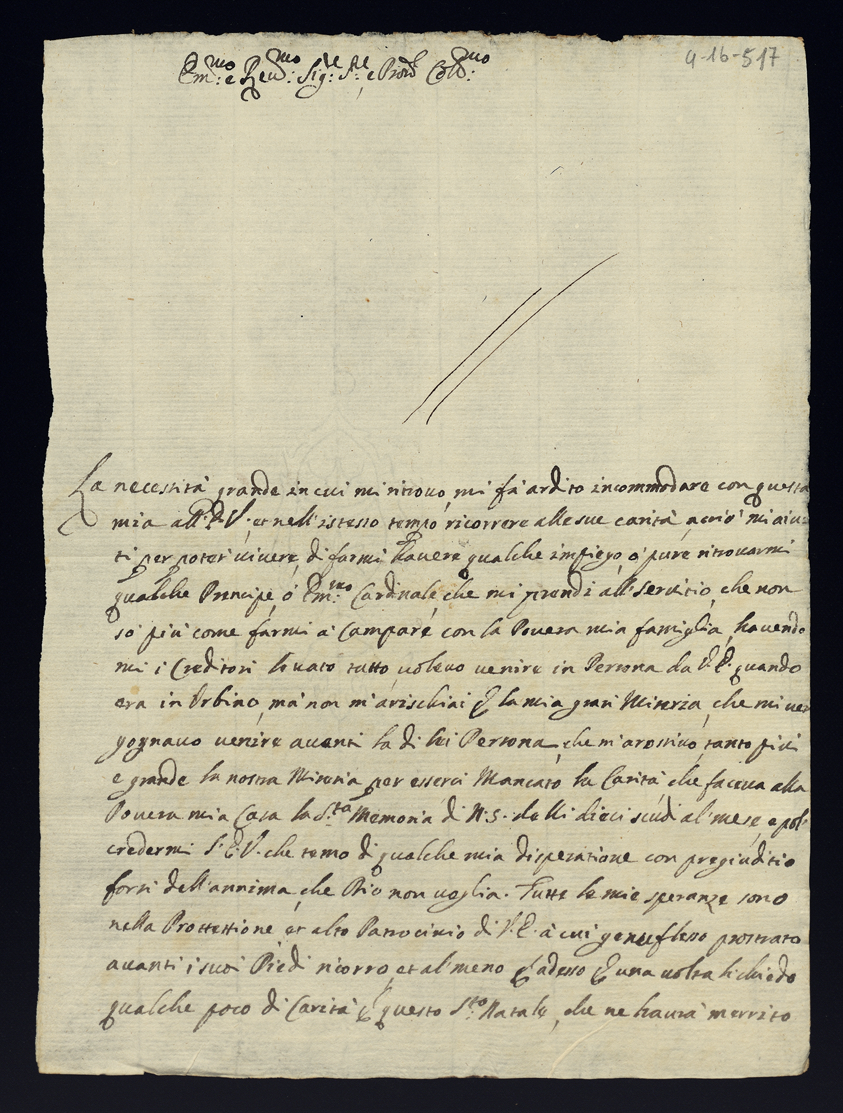 4-16-517
Em:mo e Reu:mo Sig:re S:re e Pron Col:mo
La necessita' grande in cui mi ritrouo, mi fà ardito incommodare con questa
mia all'E.V., et nell'istesso tempo ricorrere alle sue carita, acciò mi aiu-
ti per poter uiuere, di farmi hauere qualche impiego, o' pure ritrouarmi
qualche Prencipe ò Em:mo Cardinale che mi prendi all'seruitio, che non
sò più come farmi à Campare con la Pouera mia famiglia, hauendo
mi i Creditori leuato tutto, uoleuo uenire in Persona da V.E. quando
era in Urbino, mà non m'arischiai P la mia gran Miseria, che mi uer
gognauo uenire auanti la di lui Persona, che m'arossiuo, tanto più
e grande la nostra Miseria per esserci Mancato la Carità che faceua alla
Pouera mia Casa la S:ta Memoria di N.S. delli dieci scudi al'mese, e pol'
credermi V.E.V. che temo di qualche mia disperatione con pregiuditio
forsi dell'annima, che Dio non uoglia. Tutte le mie speranze sono
nella Prottettione et alto Patrocinio di V.E. à cui genuflesso prostrato
auanti i suoi Piedi ricorro et al'meno P adesso P una uolta li chiedo
qualche poco di Carità P questo S:to Natale, che ne haurà merrito